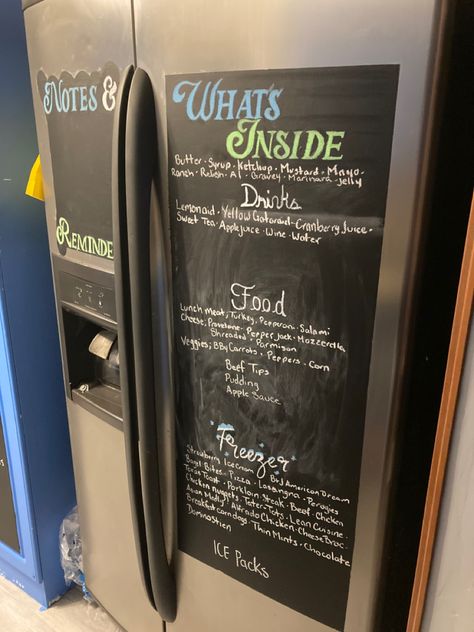 NOTES &
REMINDE
WHAT'S
INSIDE
Butter · Syrup · Ketchup · Mustard · Mayo
Ranch · Relish · A1 · Gravey · Marinara · Jelly
Drinks
Lemonaid · Yellow Gatoraid · Cranberry Juice ·
Sweet Tea · Apple juice · Wine · Water
Food
Lunch meat; Turkey, Pepperoni · Salami
Cheese; Provolone · Pepper jack · Mozzerella
Shreaded · Parmison
Veggies; BBy Carrots · Peppers · Corn
Beef Tips
Pudding
Apple Sauce
Freezer
Strawberry Icecream · B+J American Dream
Bagil Bites · Pizza · Lassangna · Perogies
Texas Toast · Porkloin Steak · Beef
Chicken nuggets · Tater-Tots · Chicken
Asian Medly · Lean Cuisine
Alfrado Chicken · Cheese Broc
Breakfast corn dogs · Thin Mints · Chocolate
ICE Packs